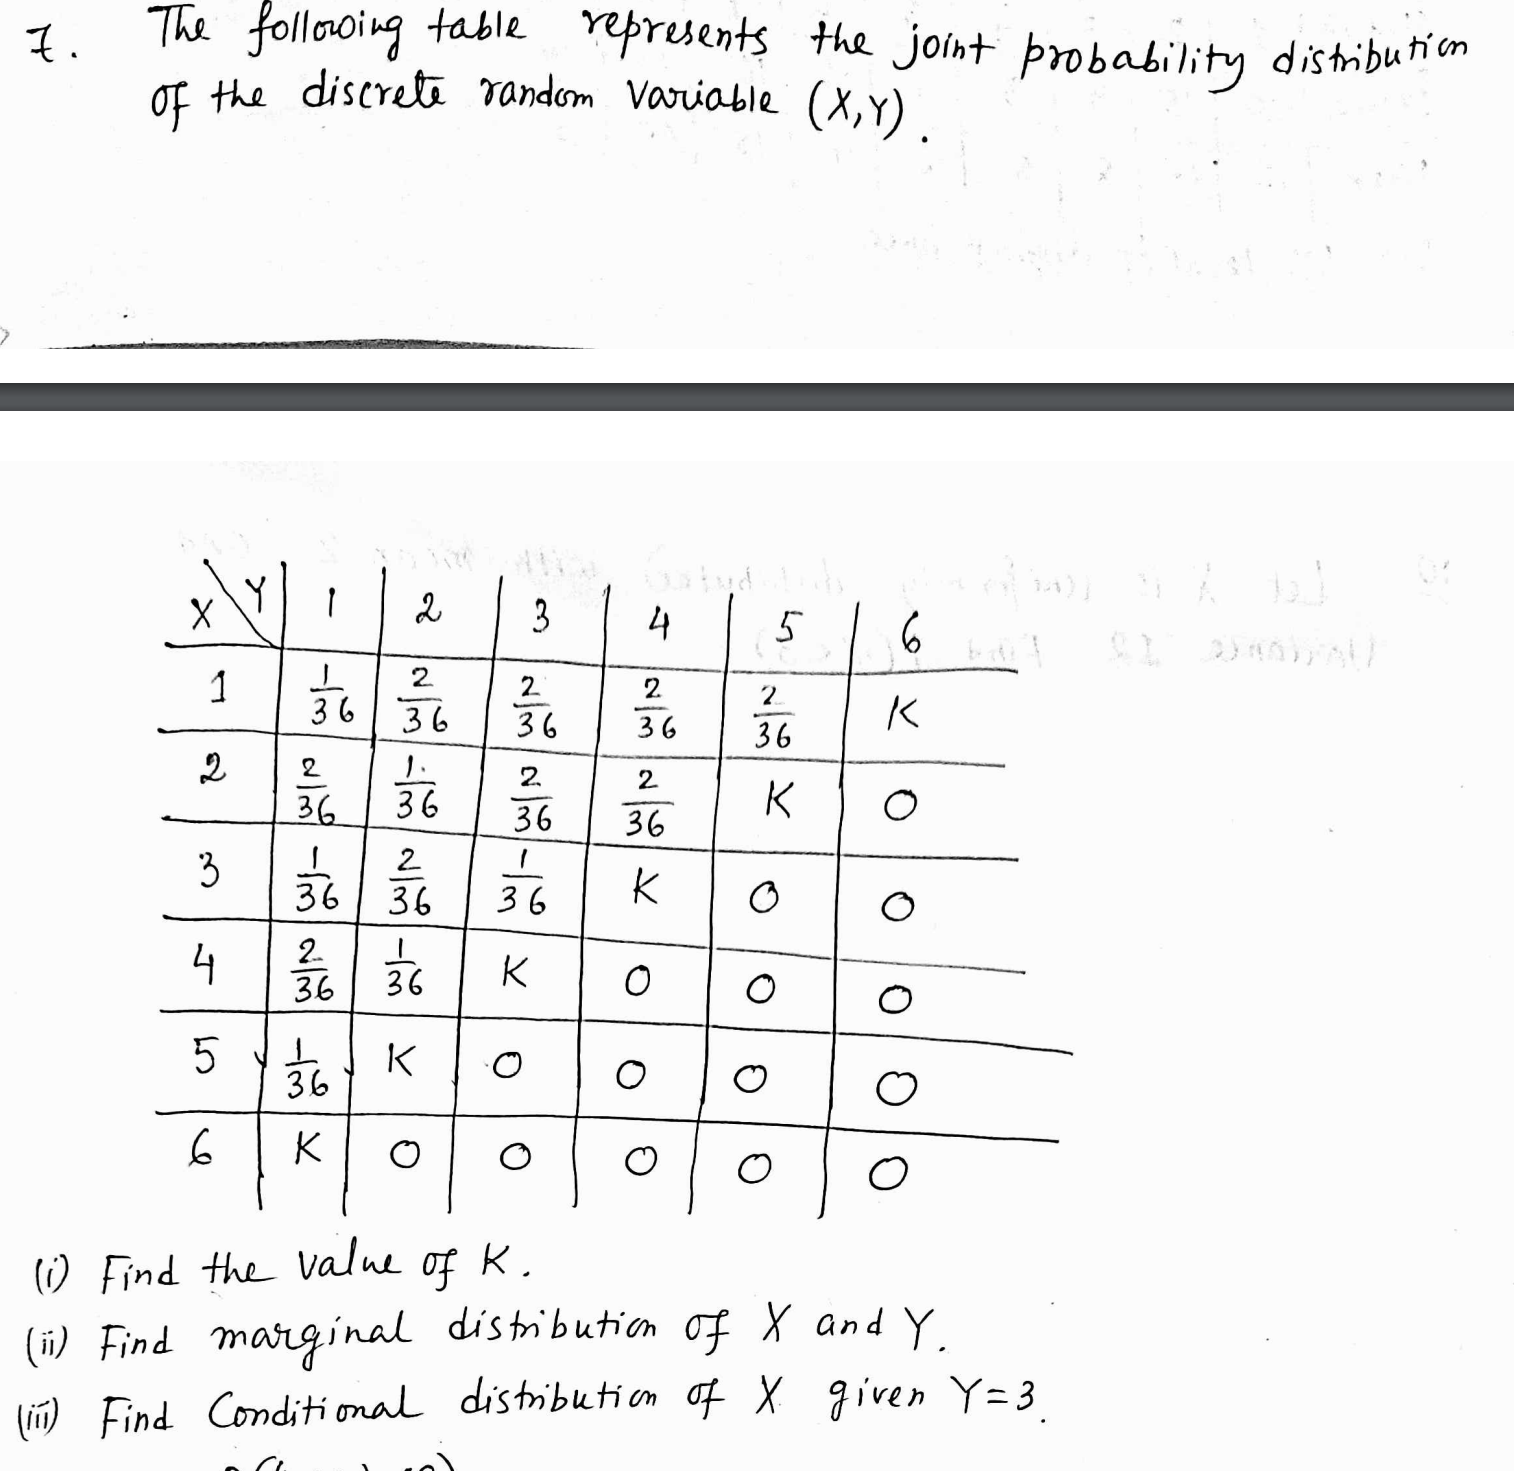 7. The following table represents the joint probability distribution
of the discrete random variable (X,Y).
X Y 1 2 3 4 5 6
1 1/36 2/36 2/36 2/36 2/36 K
2 2/36 1/36 2/36 2/36 K 0
3 1/36 2/36 1/36 K 0 0
4 2/36 1/36 K 0 0 0
5 1/36 K 0 0 0 0
6 K 0 0 0 0 0
(i) Find the value of K.
(ii) Find marginal distribution of X and Y.
(iii) Find Conditional distribution of X given Y=3.